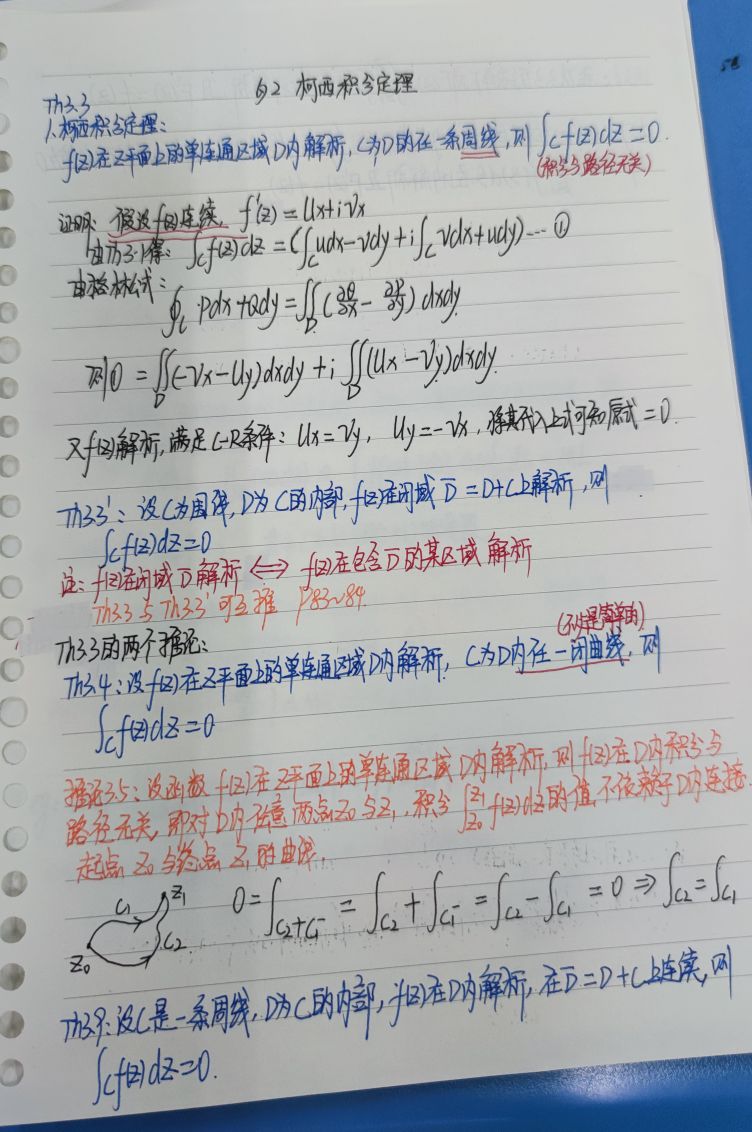 §2 柯西积分定理
Th3.3
1.柯西积分定理：
f(z)在Z平面上的单连通区域D内解析，C为D的任一条周线，则∫_C f(z)dz=0.
(积分与路径无关)
证明：假设f'(z)连续，f'(z)=Ux+iVx
由Th3.1得：∫_C f(z)dz=(∫_C udx-vdy+i∫_C vdx+udy)…①
由格林公式：
∮_C Pdx+Qdy=∬_D(∂Q/∂x-∂P/∂y)dxdy
则①=∬_D(-Vx-Uy)dxdy+i∬_D(Ux-Vy)dxdy
又f(z)解析，满足C-R条件：Ux=Vy，Uy=-Vx，将其代入上式可知原式=0.
Th3.3'：设C为周线，D为C的内部，f(z)在闭域D̅=D+C上解析，则
∫_C f(z)dz=0
注：f(z)在闭域D̅解析⟺f(z)在包含D̅的某区域解析
Th3.3与Th3.3'可互推 P83~84.
Th3.3的两个推论：
(不必是简单的)
Th3.4：设f(z)在Z平面上的单连通区域D内解析，C为D内任一闭曲线，则
∫_C f(z)dz=0
推论3.5：设函数f(z)在Z平面上的单连通区域D内解析，则f(z)在D内积分与
路径无关，即对D内任意两点Z₀与Z₁，积分∫_{Z₀}^{Z₁}f(z)dz的值不依赖于D内连接
起点Z₀与终点Z₁的曲线.
C₁ Z₁ 0=∫_{C₂+C₁⁻}=∫_{C₂}+∫_{C₁⁻}=∫_{C₂}-∫_{C₁}=0⇒∫_{C₂}=∫_{C₁}
Z₀ C₂
Th3.9：设C是一条周线，D为C的内部，f(z)在D内解析，在D̅=D+C上连续，则
∫_C f(z)dz=0.